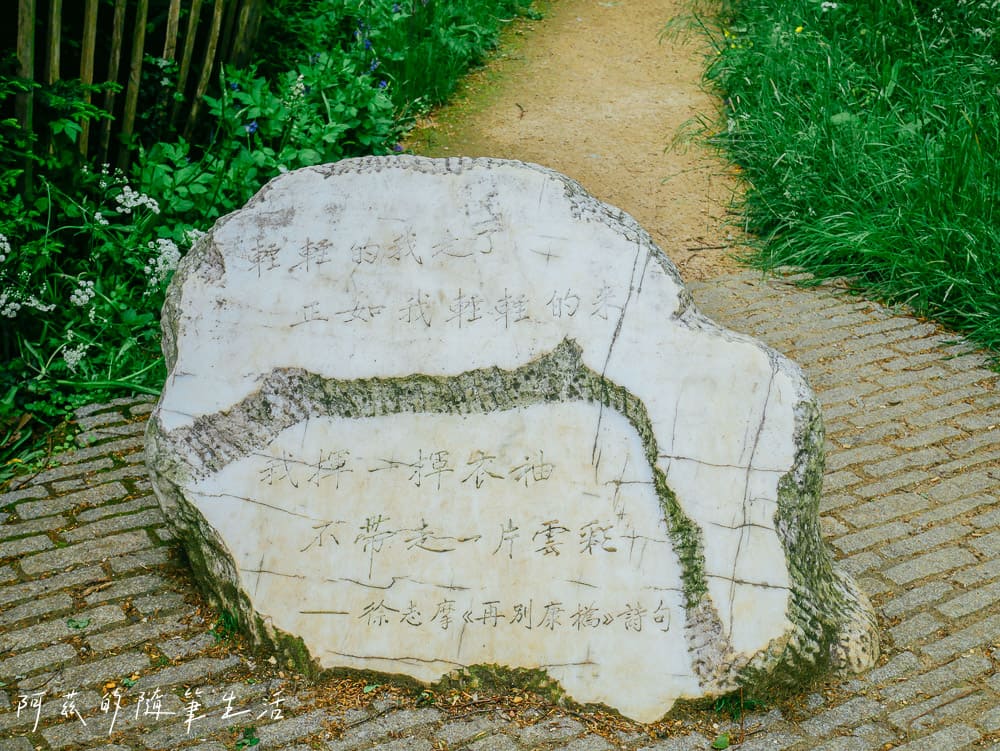 輕輕的我走了
正如我輕輕的來
我揮一揮衣袖
不帶走一片雲彩
——徐志摩《再別康橋》詩句
阿茲的隨筆生活